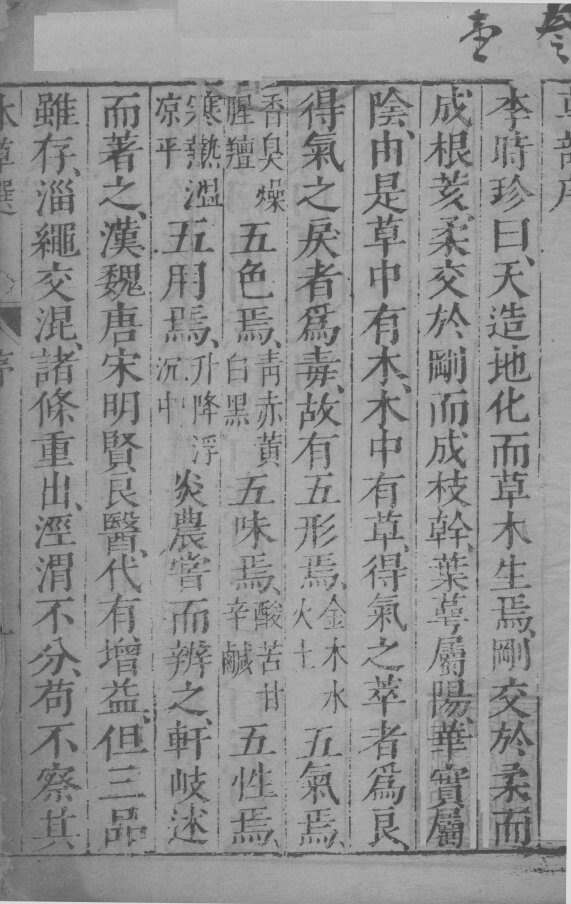 草部序
李時珍曰、天造地化而草木生焉、剛交於柔而
成根荄、柔交於剛而成枝幹、葉萼屬陽、華實屬
陰、由是草中有木、木中有草、得氣之萃者爲良、
得氣之戾者爲毒、故有五形焉、金木水火土五氣焉、
香臭燥腥羶五色焉、青赤黃白黑五味焉、酸苦甘辛鹹五性焉、
寒熱溫凉平五用焉、升降浮沉中炎農嘗而辨之、軒岐述
而著之、漢魏唐宋明賢良醫、代有增益、但三品
雖存、淄繩交混、諸條重出、涇渭不分、苟不察其
本草選 序